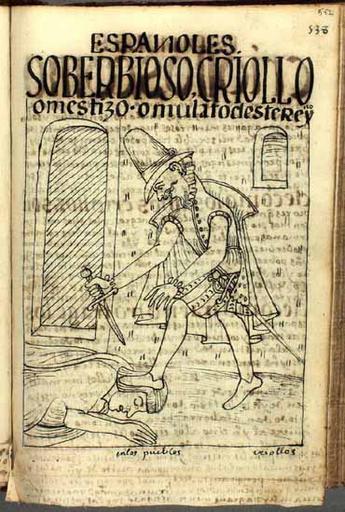 552
538
ESPAÑOLES.
SOBERBIOSO, CRIOLLO
o mestizo · o mulato deste rey no
en los pueblos
criollos